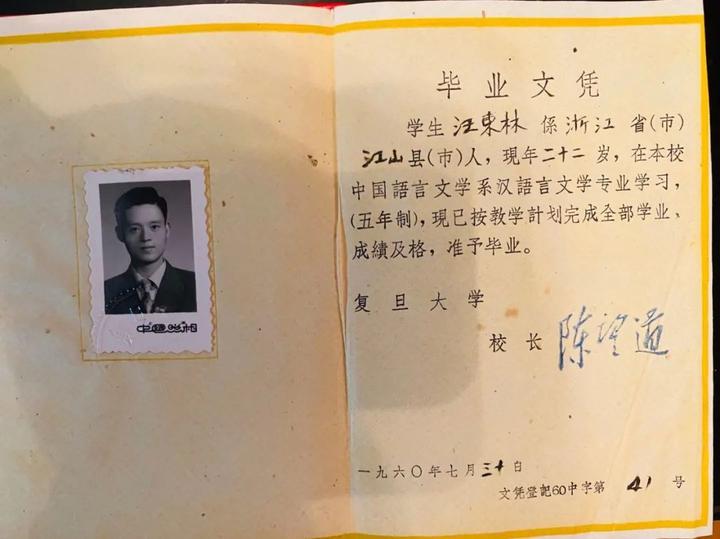 中國照相
毕业文凭
学生汪東林係浙江省(市)
江山县(市)人，現年二十二岁，在本校
中国語言文学系汉語言文学专业学习，
(五年制)，現已按教学計划完成全部学业、
成績及格，准予毕业。
复旦大学
校长 陈望道
一九六〇年七月三十日
文凭登記60中字第 41 号